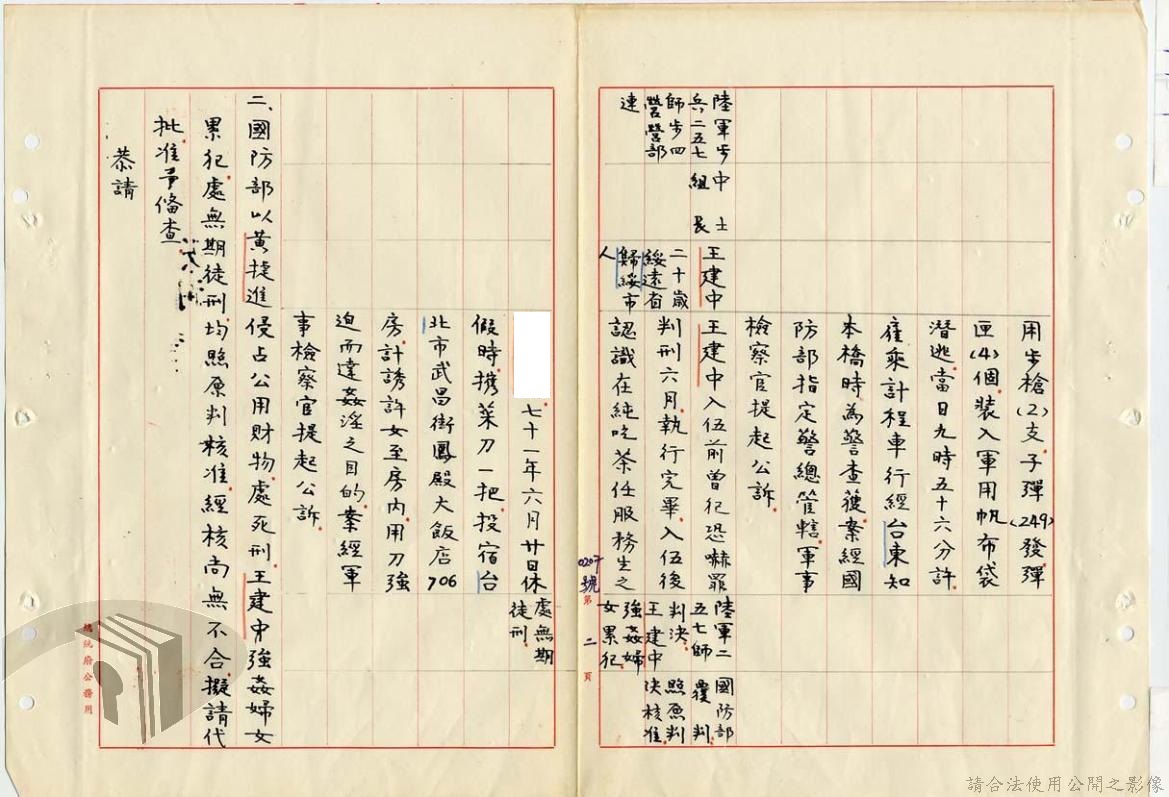 用步槍(2)支、子彈(249)發、彈
匣(4)個、裝入軍用帆布袋
潛逃、當日九時五十六分許、
僱乘計程車行經台東知
本橋時、為警查獲、案經國
防部指定警總管轄、軍事
檢察官提起公訴、
陸軍步中士
兵二五七組長
師步四
營營部
連
王建中
二十歲
綏遠省
歸綏市
人
王建中入伍前曾犯恐嚇罪
判刑六月、執行完畢、入伍後
認識在純吃茶任服務生之
陸軍二
五七師
判決、
王建中
強姦婦
女累犯、
國防部
覆判、
照原判
決核准、
0207號
第二頁
七十一年六月廿日休
假時、攜菜刀一把、投宿台
北市武昌街鳳殿大飯店706
房、計誘許女至房內、用刀強
迫而達姦淫之目的、案經軍
事檢察官提起公訴、
處無期
徒刑、
二、國防部以黃捷進侵占公用財物、處死刑、王建中強姦婦女
累犯、處無期徒刑、均照原判核准、經核尚無不合、擬請代
批、准予備查、
恭請
總統府公務用
請合法使用公開之影像